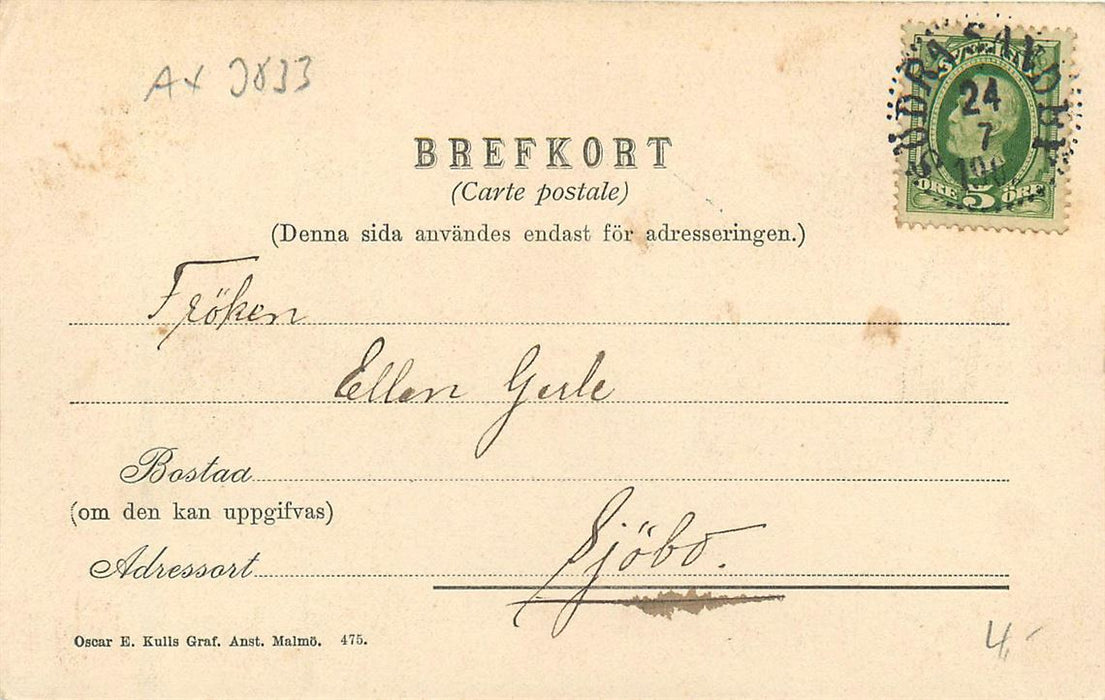 Ax 3833
SÖDRA SANDBY
24
7
190
SVERIGE
ÖRE 5 ÖRE
BREFKORT
(Carte postale)
(Denna sida användes endast för adresseringen.)
Fröken
Ellen Gerle
Bostad
(om den kan uppgifvas)
Sjöbo.
Adressort
Oscar E. Kulls Graf. Anst. Malmö. 475.
4,-